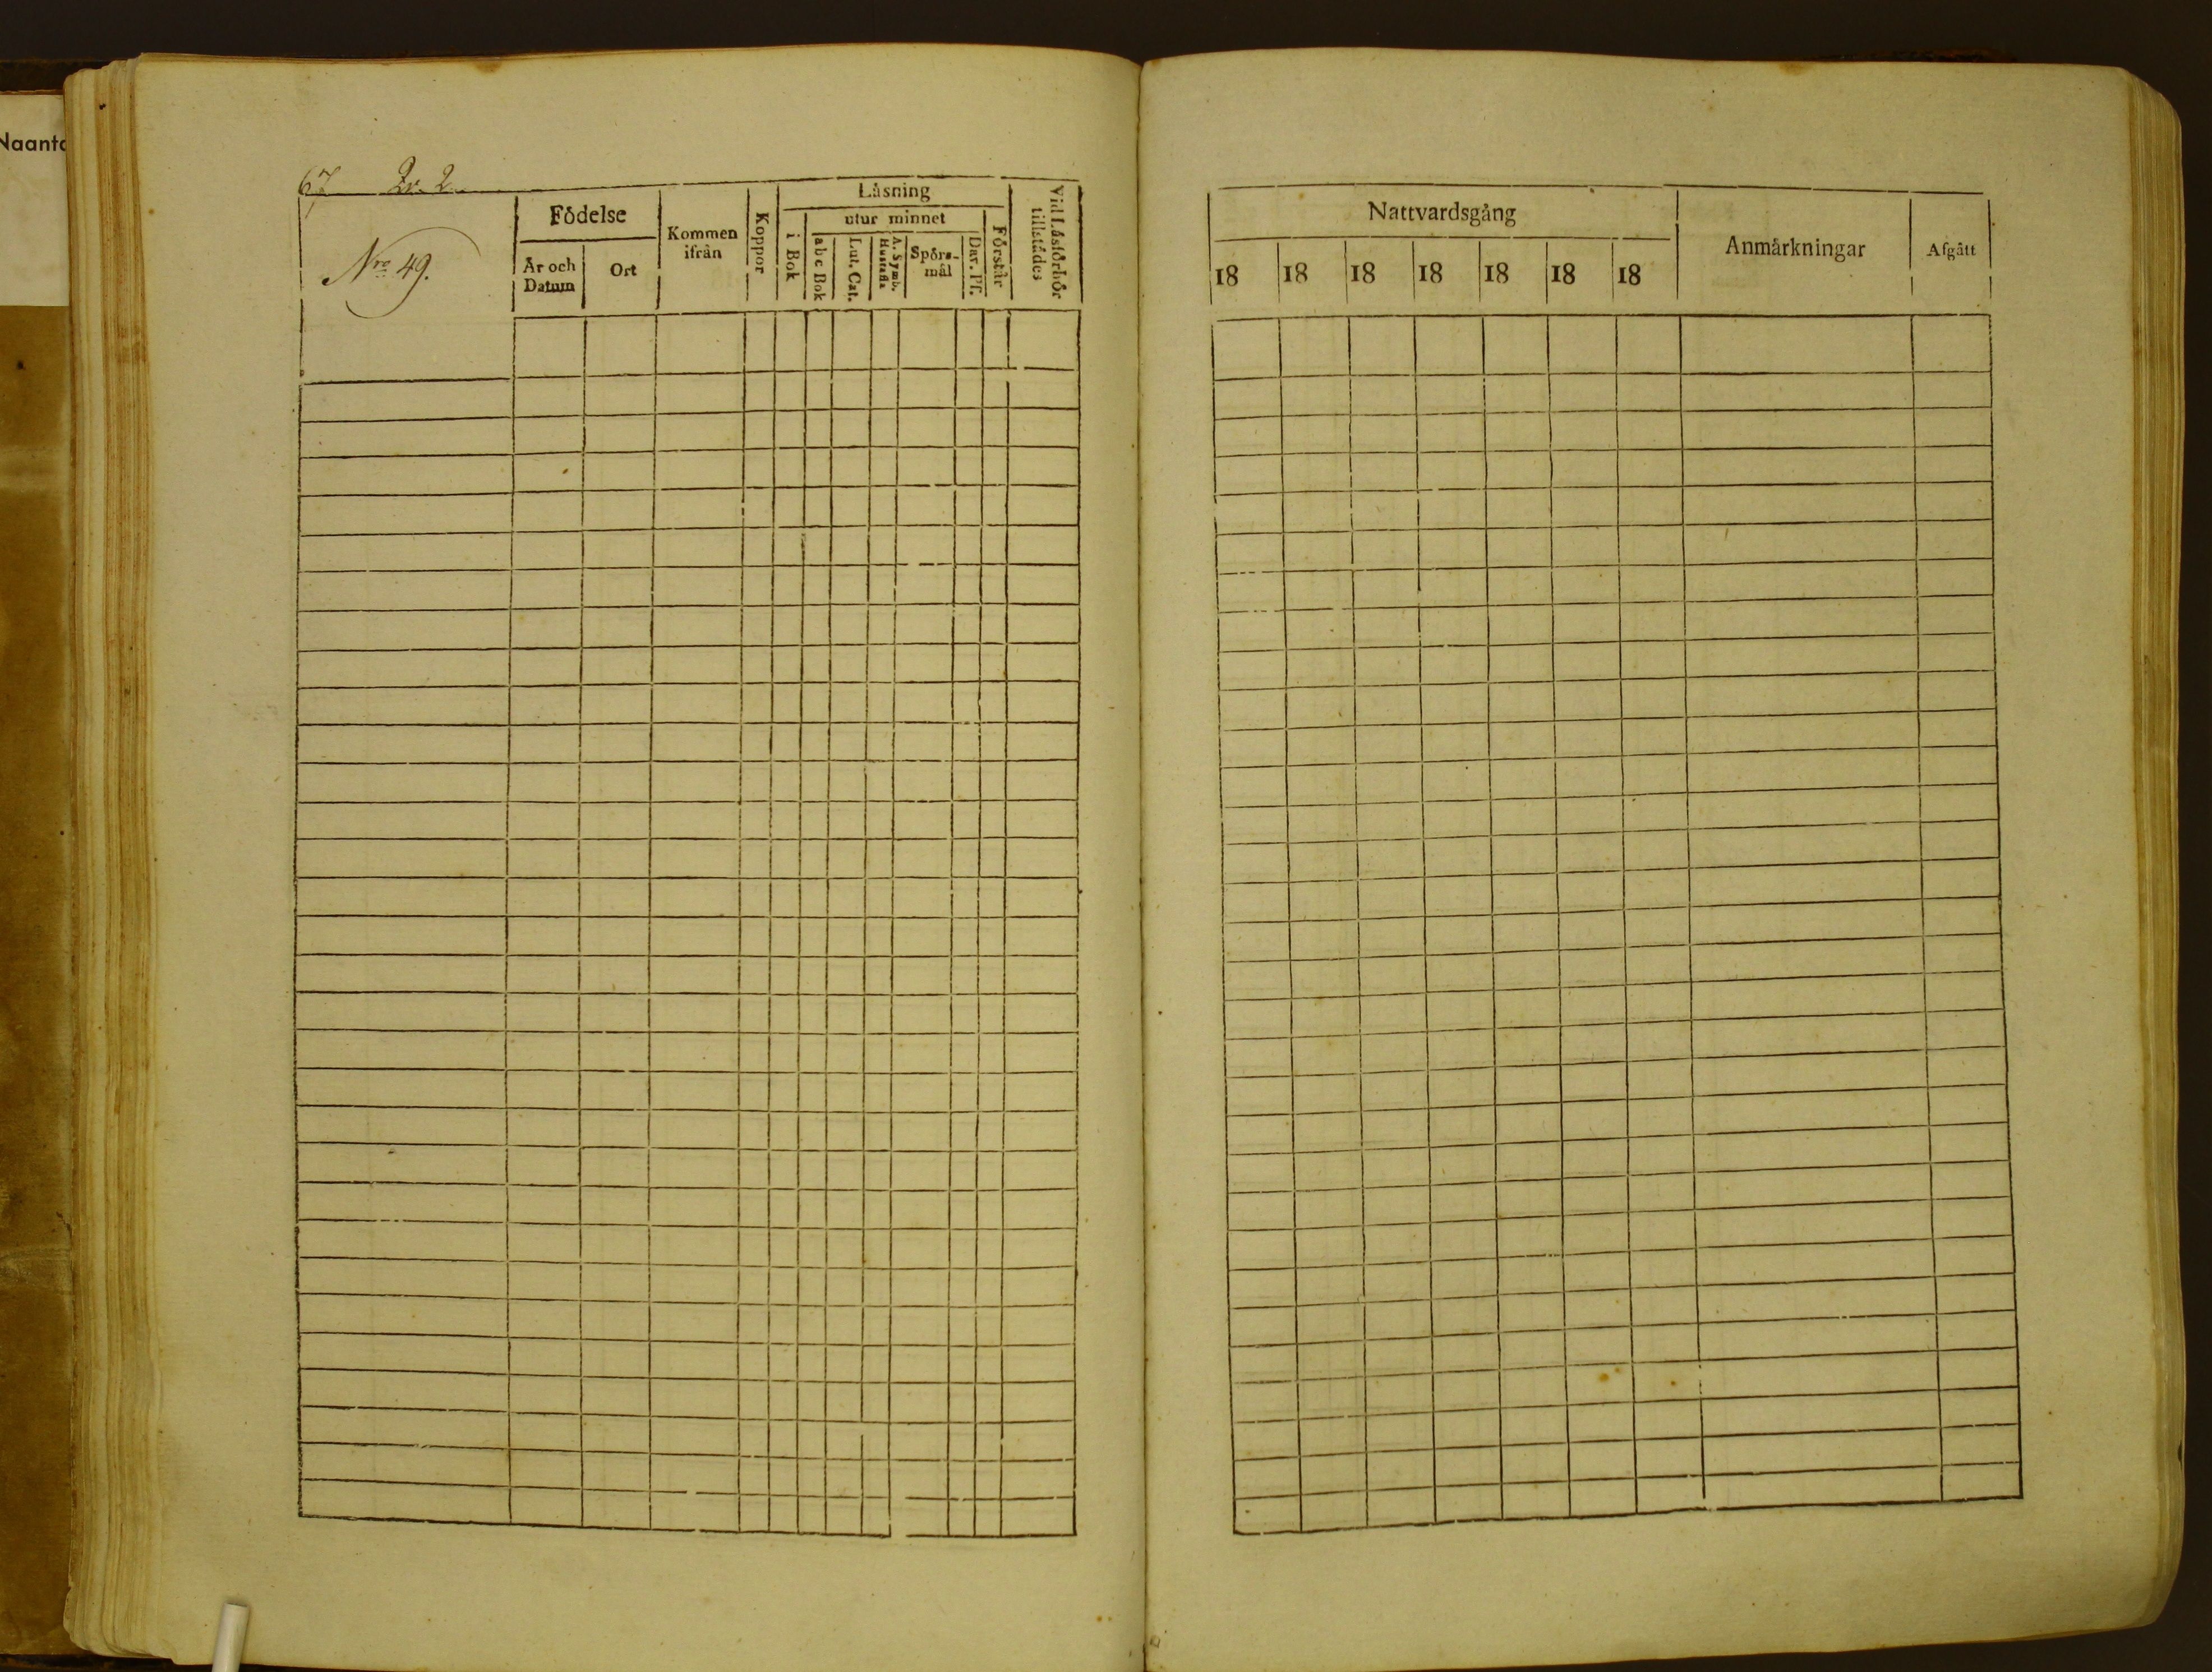 Naanta
67 Qv. 2
Nro 49.
Födelse
År och
Datum
Ort
Kommen
ifrån
Koppor
Låsning
i Bok
utur minnet
abc Bok
Lut. Cat.
A. Symb.
Hustafla
Spörs-
mål
Dav. Ps.
Förstår
Vid Låsförhör
tillstädes
Nattvardsgång
18 18 18 18 18 18 18
Anmärkningar
Afgått